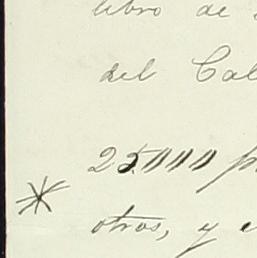 libro de
del Cal
25000 p
* otros, y e